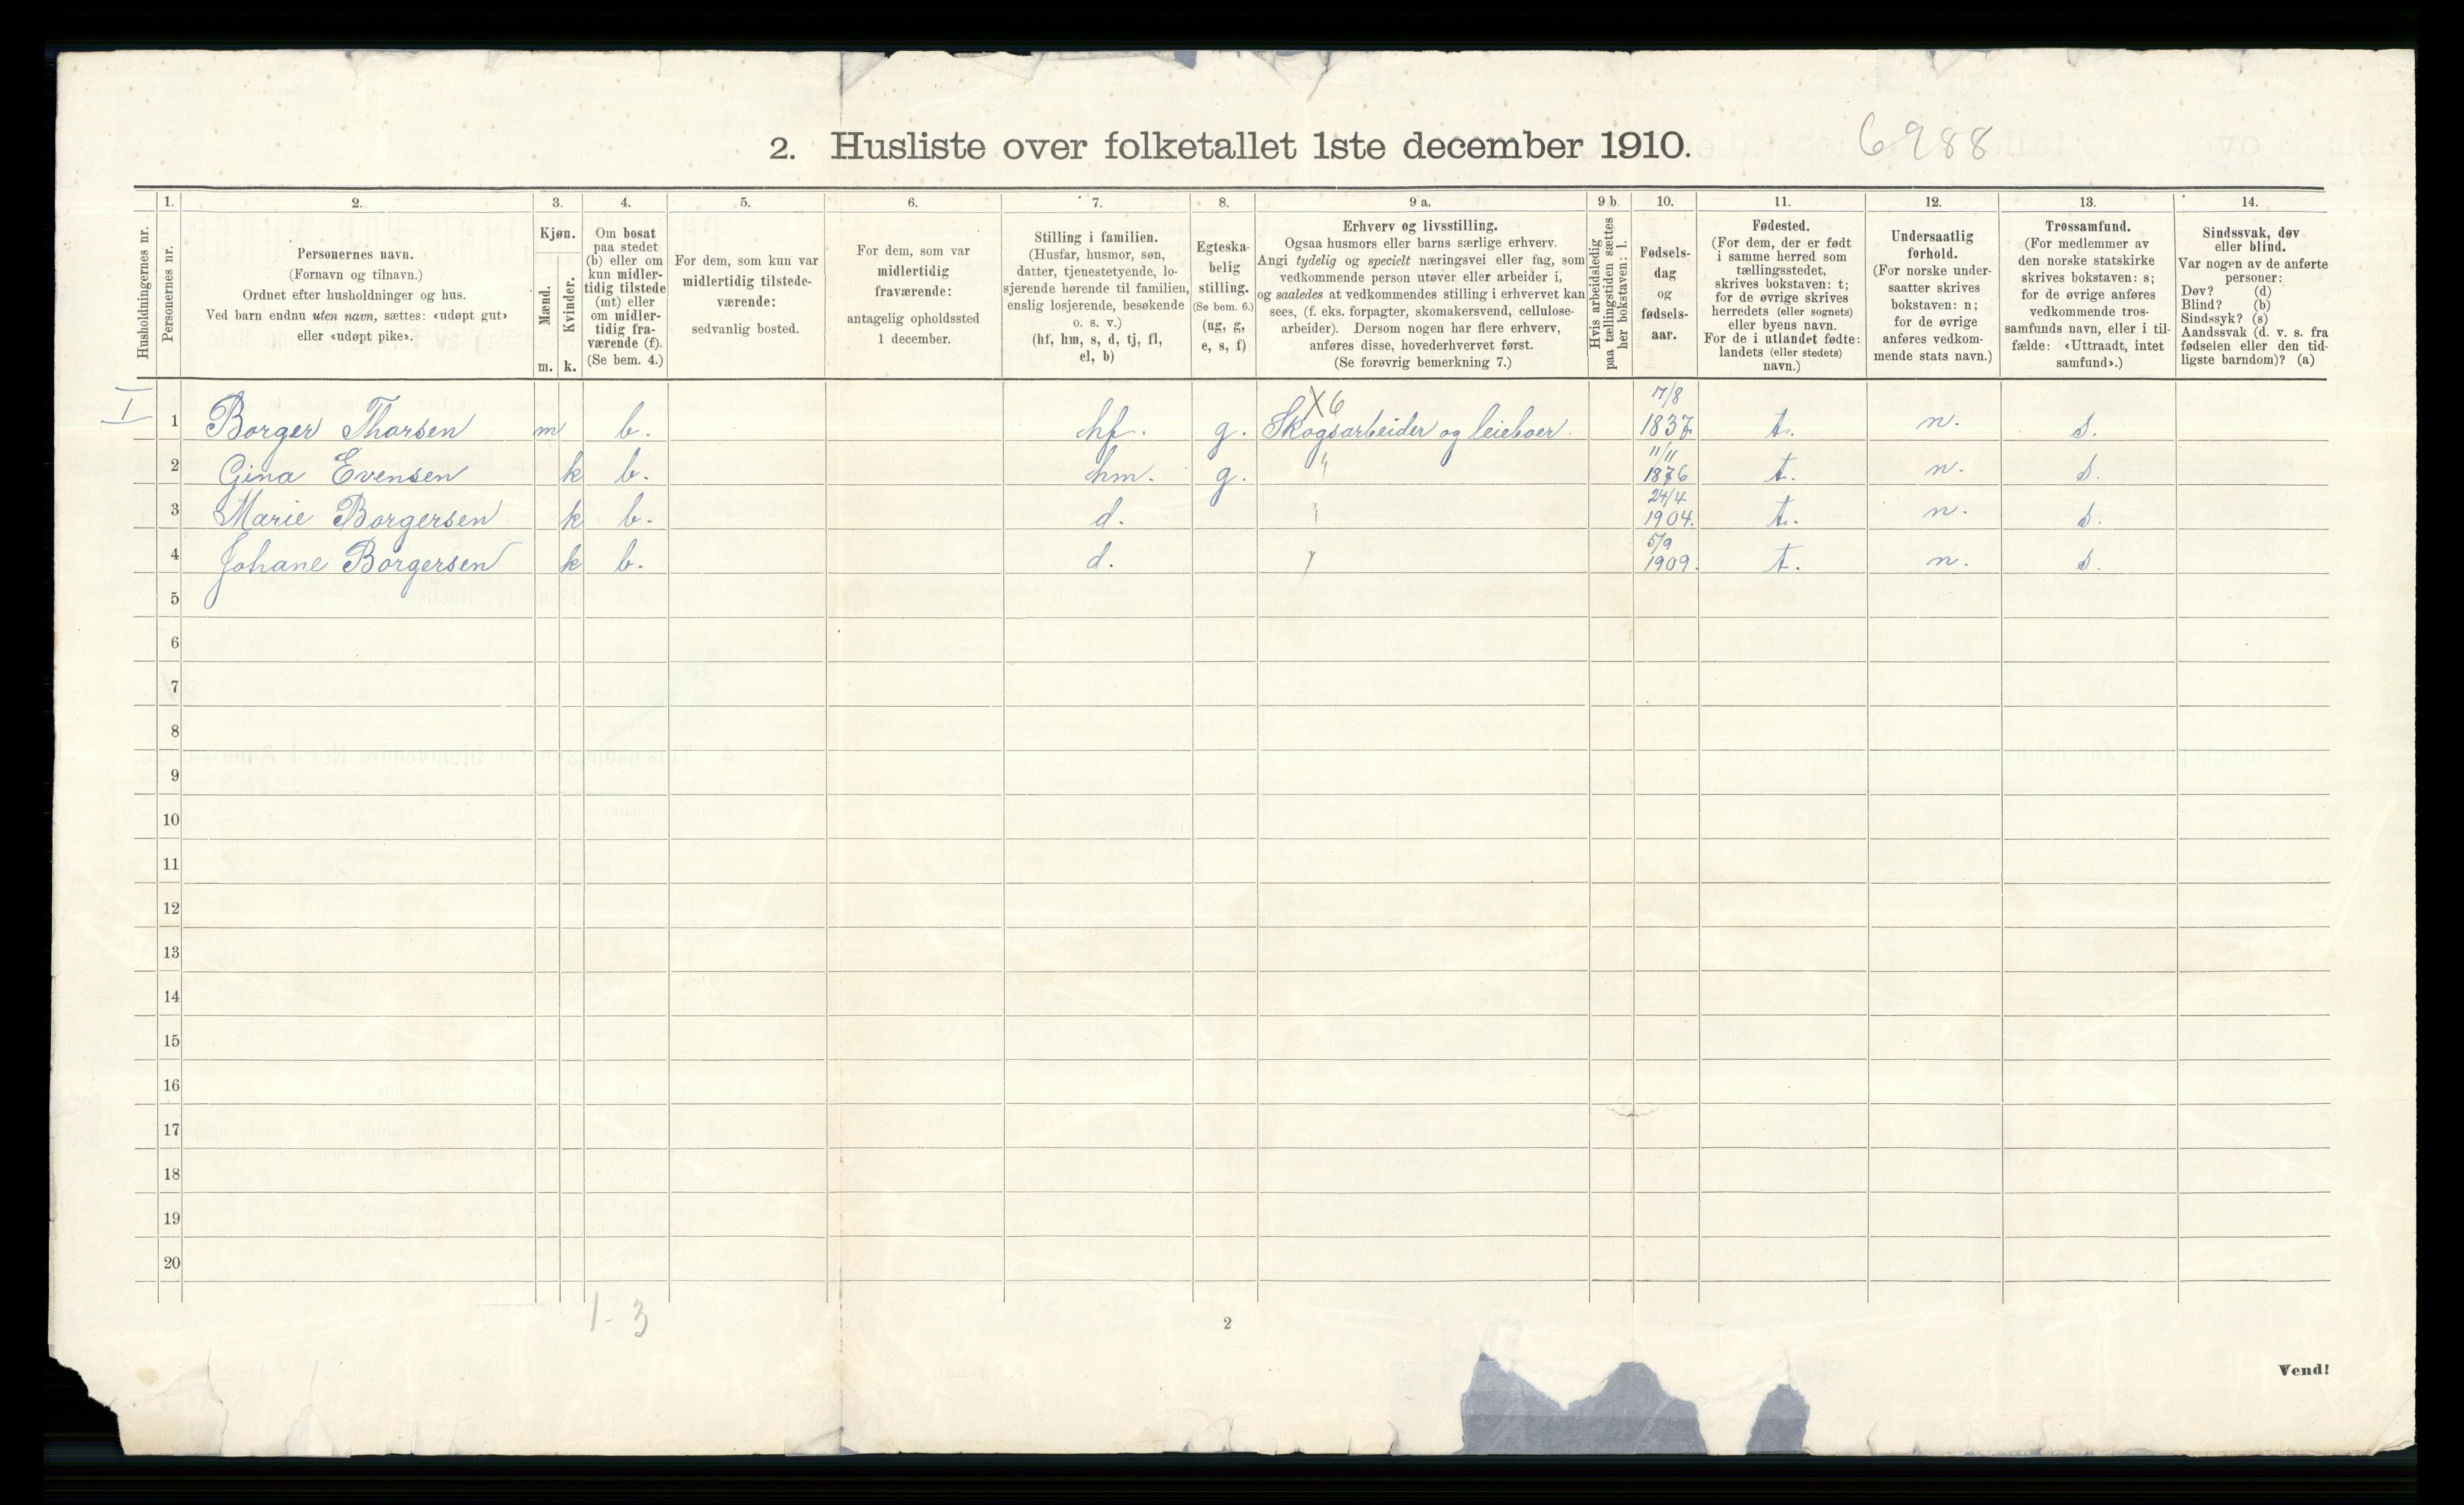 2. Husliste over folketallet 1ste december 1910. 6988
1. 2. 3. 4. 5. 6. 7. 8. 9 a. 9 b. 10. 11. 12. 13. 14.
Husholdningernes nr.
Personernes nr.
Personernes navn.
(Fornavn og tilnavn.)
Ordnet efter husholdninger og hus.
Ved barn endnu uten navn, sættes: «udøpt gut»
eller «udøpt pike».
Kjøn.
Mænd.
Kvinder.
m. k.
Om bosat
paa stedet
(b) eller om
kun midler-
tidig tilstede
(mt) eller
om midler-
tidig fra-
værende (f).
(Se bem. 4.)
For dem, som kun var
midlertidig tilstede-
værende:
sedvanlig bosted.
For dem, som var
midlertidig
fraværende:
antagelig opholdssted
1 december.
Stilling i familien.
(Husfar, husmor, søn,
datter, tjenestetyende, lo-
sjerende hørende til familien,
enslig losjerende, besøkende
o. s. v.)
(hf, hm, s, d, tj, fl,
el, b)
Egteska-
belig
stilling.
(Se bem. 6.)
(ug, g,
e, s, f)
Erhverv og livsstilling.
Ogsaa husmors eller barns særlige erhverv.
Angi tydelig og specielt næringsvei eller fag, som
vedkommende person utøver eller arbeider i,
og saaledes at vedkommendes stilling i erhvervet kan
sees, (f. eks. forpagter, skomakersvend, cellulose-
arbeider). Dersom nogen har flere erhverv,
anføres disse, hovederhvervet først.
(Se forøvrig bemerkning 7.)
Hvis arbeidsledig
paa tællingstiden sættes
her bokstaven: l.
Fødsels-
dag
og
fødsels-
aar.
Fødested.
(For dem, der er født
i samme herred som
tællingsstedet,
skrives bokstaven: t;
for de øvrige skrives
herredets (eller sognets)
eller byens navn.
For de i utlandet fødte:
landets (eller stedets)
navn.)
Undersaatlig
forhold.
(For norske under-
saatter skrives
bokstaven: n;
for de øvrige
anføres vedkom-
mende stats navn.)
Trossamfund.
(For medlemmer av
den norske statskirke
skrives bokstaven: s;
for de øvrige anføres
vedkommende tros-
samfunds navn, eller i til-
fælde: «Uttraadt, intet
samfund».)
Sindssvak, døv
eller blind.
Var nogen av de anførte
personer:
Døv? (d)
Blind? (b)
Sindssyk? (s)
Aandssvak (d. v. s. fra
fødselen eller den tid-
ligste barndom)? (a)
X6 17/8
I 1 Borger Thorsen m b. hf. g. Skogsarbeider og leieboer. 1837 t. n. s.
11/11
2 Gina Evensen k b. hm. g. " 1876 t. n. s.
24/4
3 Marie Borgersen k b. d. 1904. t. n. s.
5/9
4 Johane Borgersen k b. d. 1909. t. n. s.
5
6
7
8
9
10
11
12
13
14
15
16
17
18
19
20
1-3
2
Vend!